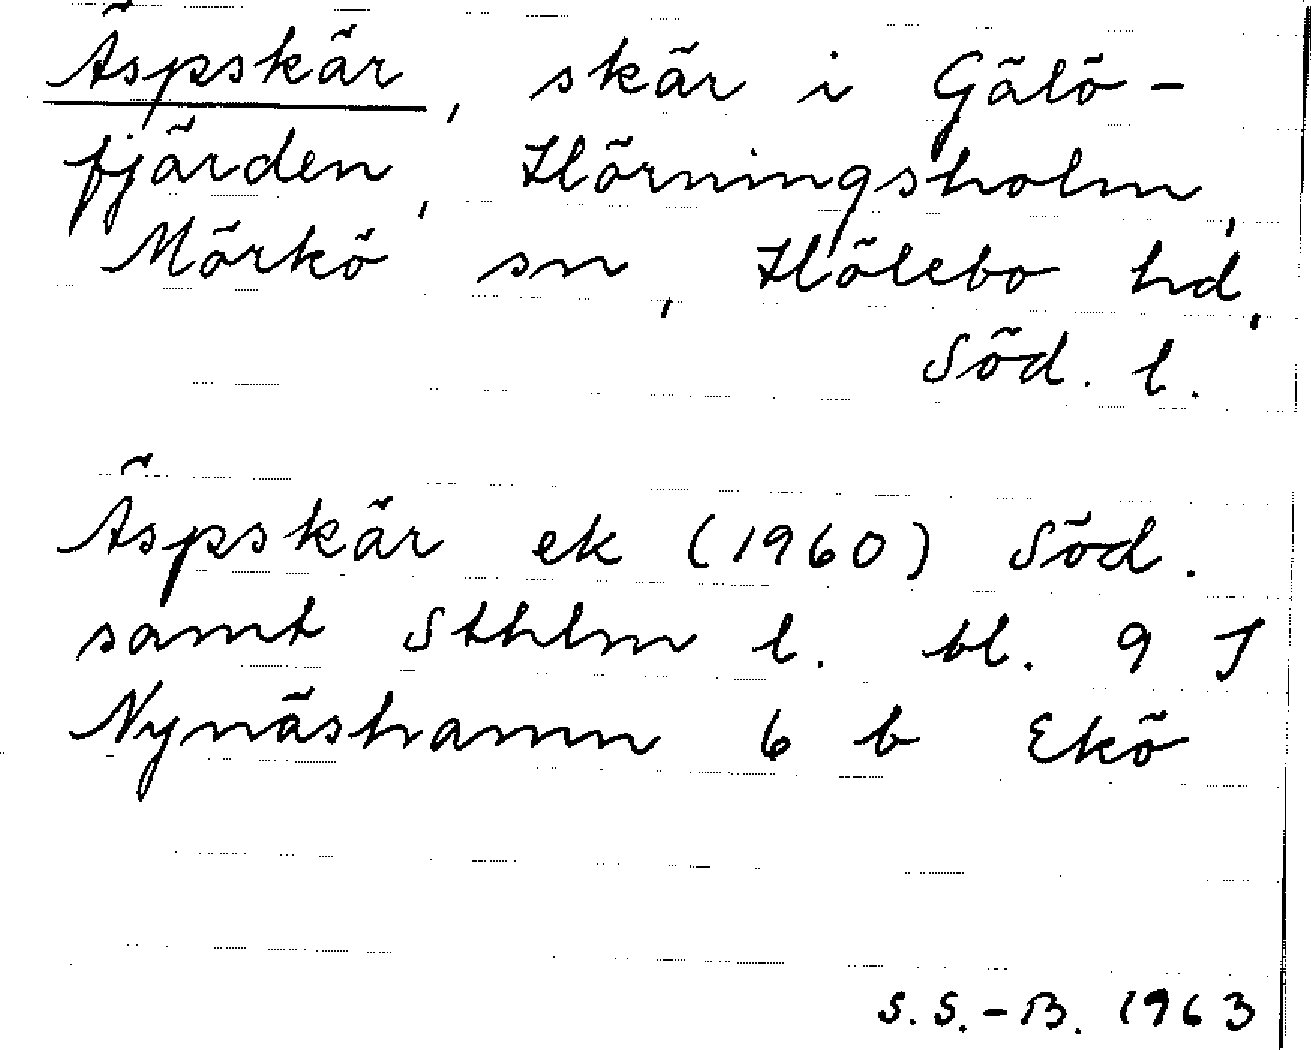 Äspskär, skär i Gälö-
fjärden, Hörningsholm,
Mörkö sn, Hölebo hd,
Söd. l.
Äspskär ek (1960) Söd.
samt Sthlm l. bl. 9 J
Nynäshamn 6 b Ekö
S.S.-B. 1963